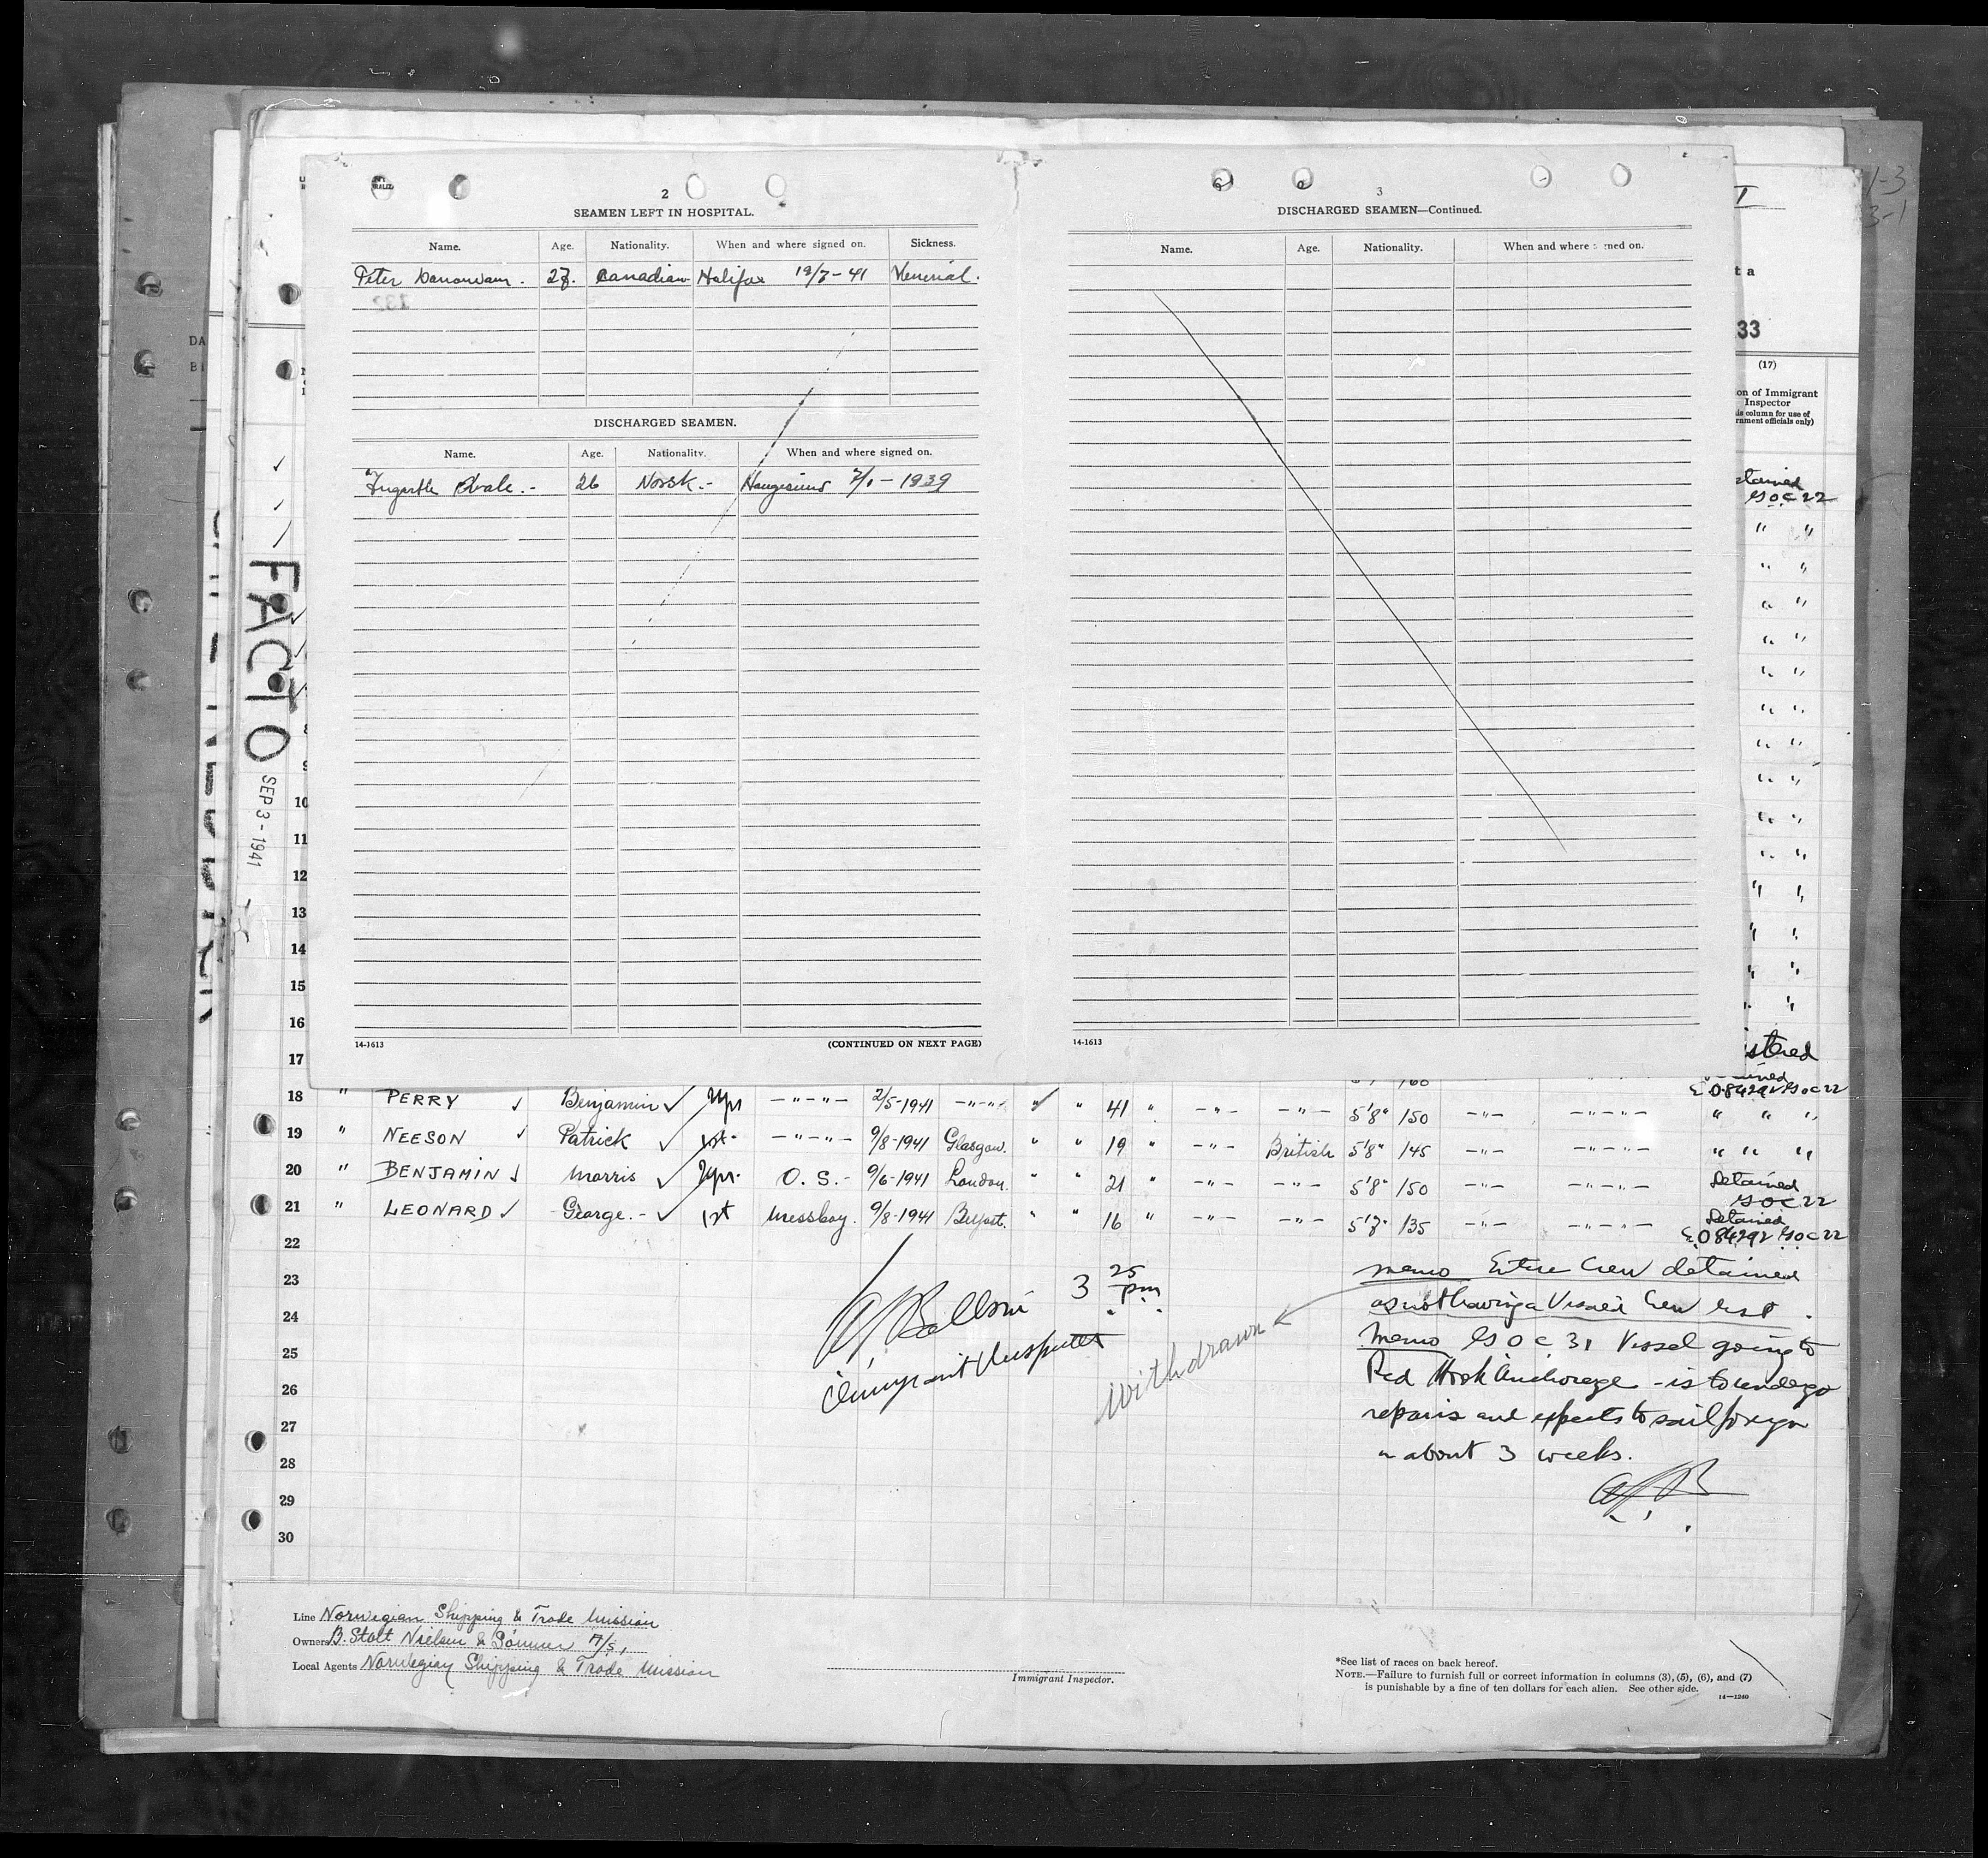 2
SEAMEN LEFT IN HOSPITAL.
Name. Age. Nationality. When and where signed on. Sickness.
Peter 27. Canadian Halifax 19/7-41
DISCHARGED SEAMEN.
Name. Age. Nationality. When and where signed on.
26 Norsk.- 1939
14-1613 (CONTINUED ON NEXT PAGE)
3
DISCHARGED SEAMEN—Continued.
Name. Age. Nationality. When and where ned on.
14-1613
1-3
3-1
t a
33
(17)
on of Immigrant
Inspector
is column for use of
rnment officials only)
tained
" "
FACTO
SEP 3 - 1941
8
9
10
11
12
13
14
15
16
17
istered
18 " PERRY Benjamin -"-"- 2/5-1941 -"-"- " " 41 " -"- -"- 5'8" /150 -"- -"-"- " " "
19 " NEESON Patrick 1st -"-"- 9/8-1941 Glasgow. " " 19 " -"- British 5'8" 145 -"- -"-"- " " "
20 " BENJAMIN Morris O. S.- 9/6-1941 London. " " 21 " -"- -"- 5'8" /150 -"- -"-"- Detained
21 " LEONARD George.- 1st Messboy. 9/8-1941 Belfast. " " 16 " -"- -"- 5'7" /135 -"- -"-"- Detained
22
23
24
25
26
27
28
29
30
3 25 pm
Immigrant Inspector
Withdrawn
Memo Entire Crew detained
as not having a Visaed Crew list.
Memo Vessel going to
Red Hook Anchorage - is to undergo
repairs and expects to sail
in about 3 weeks.
Line Norwegian Shipping & Trade Mission
Owners B. Stolt Nielsen & Sönner A/S,
Local Agents Norwegian Shipping & Trade Mission
Immigrant Inspector.
*See list of races on back hereof.
NOTE.—Failure to furnish full or correct information in columns (3), (5), (6), and (7)
is punishable by a fine of ten dollars for each alien. See other side.
14—1240